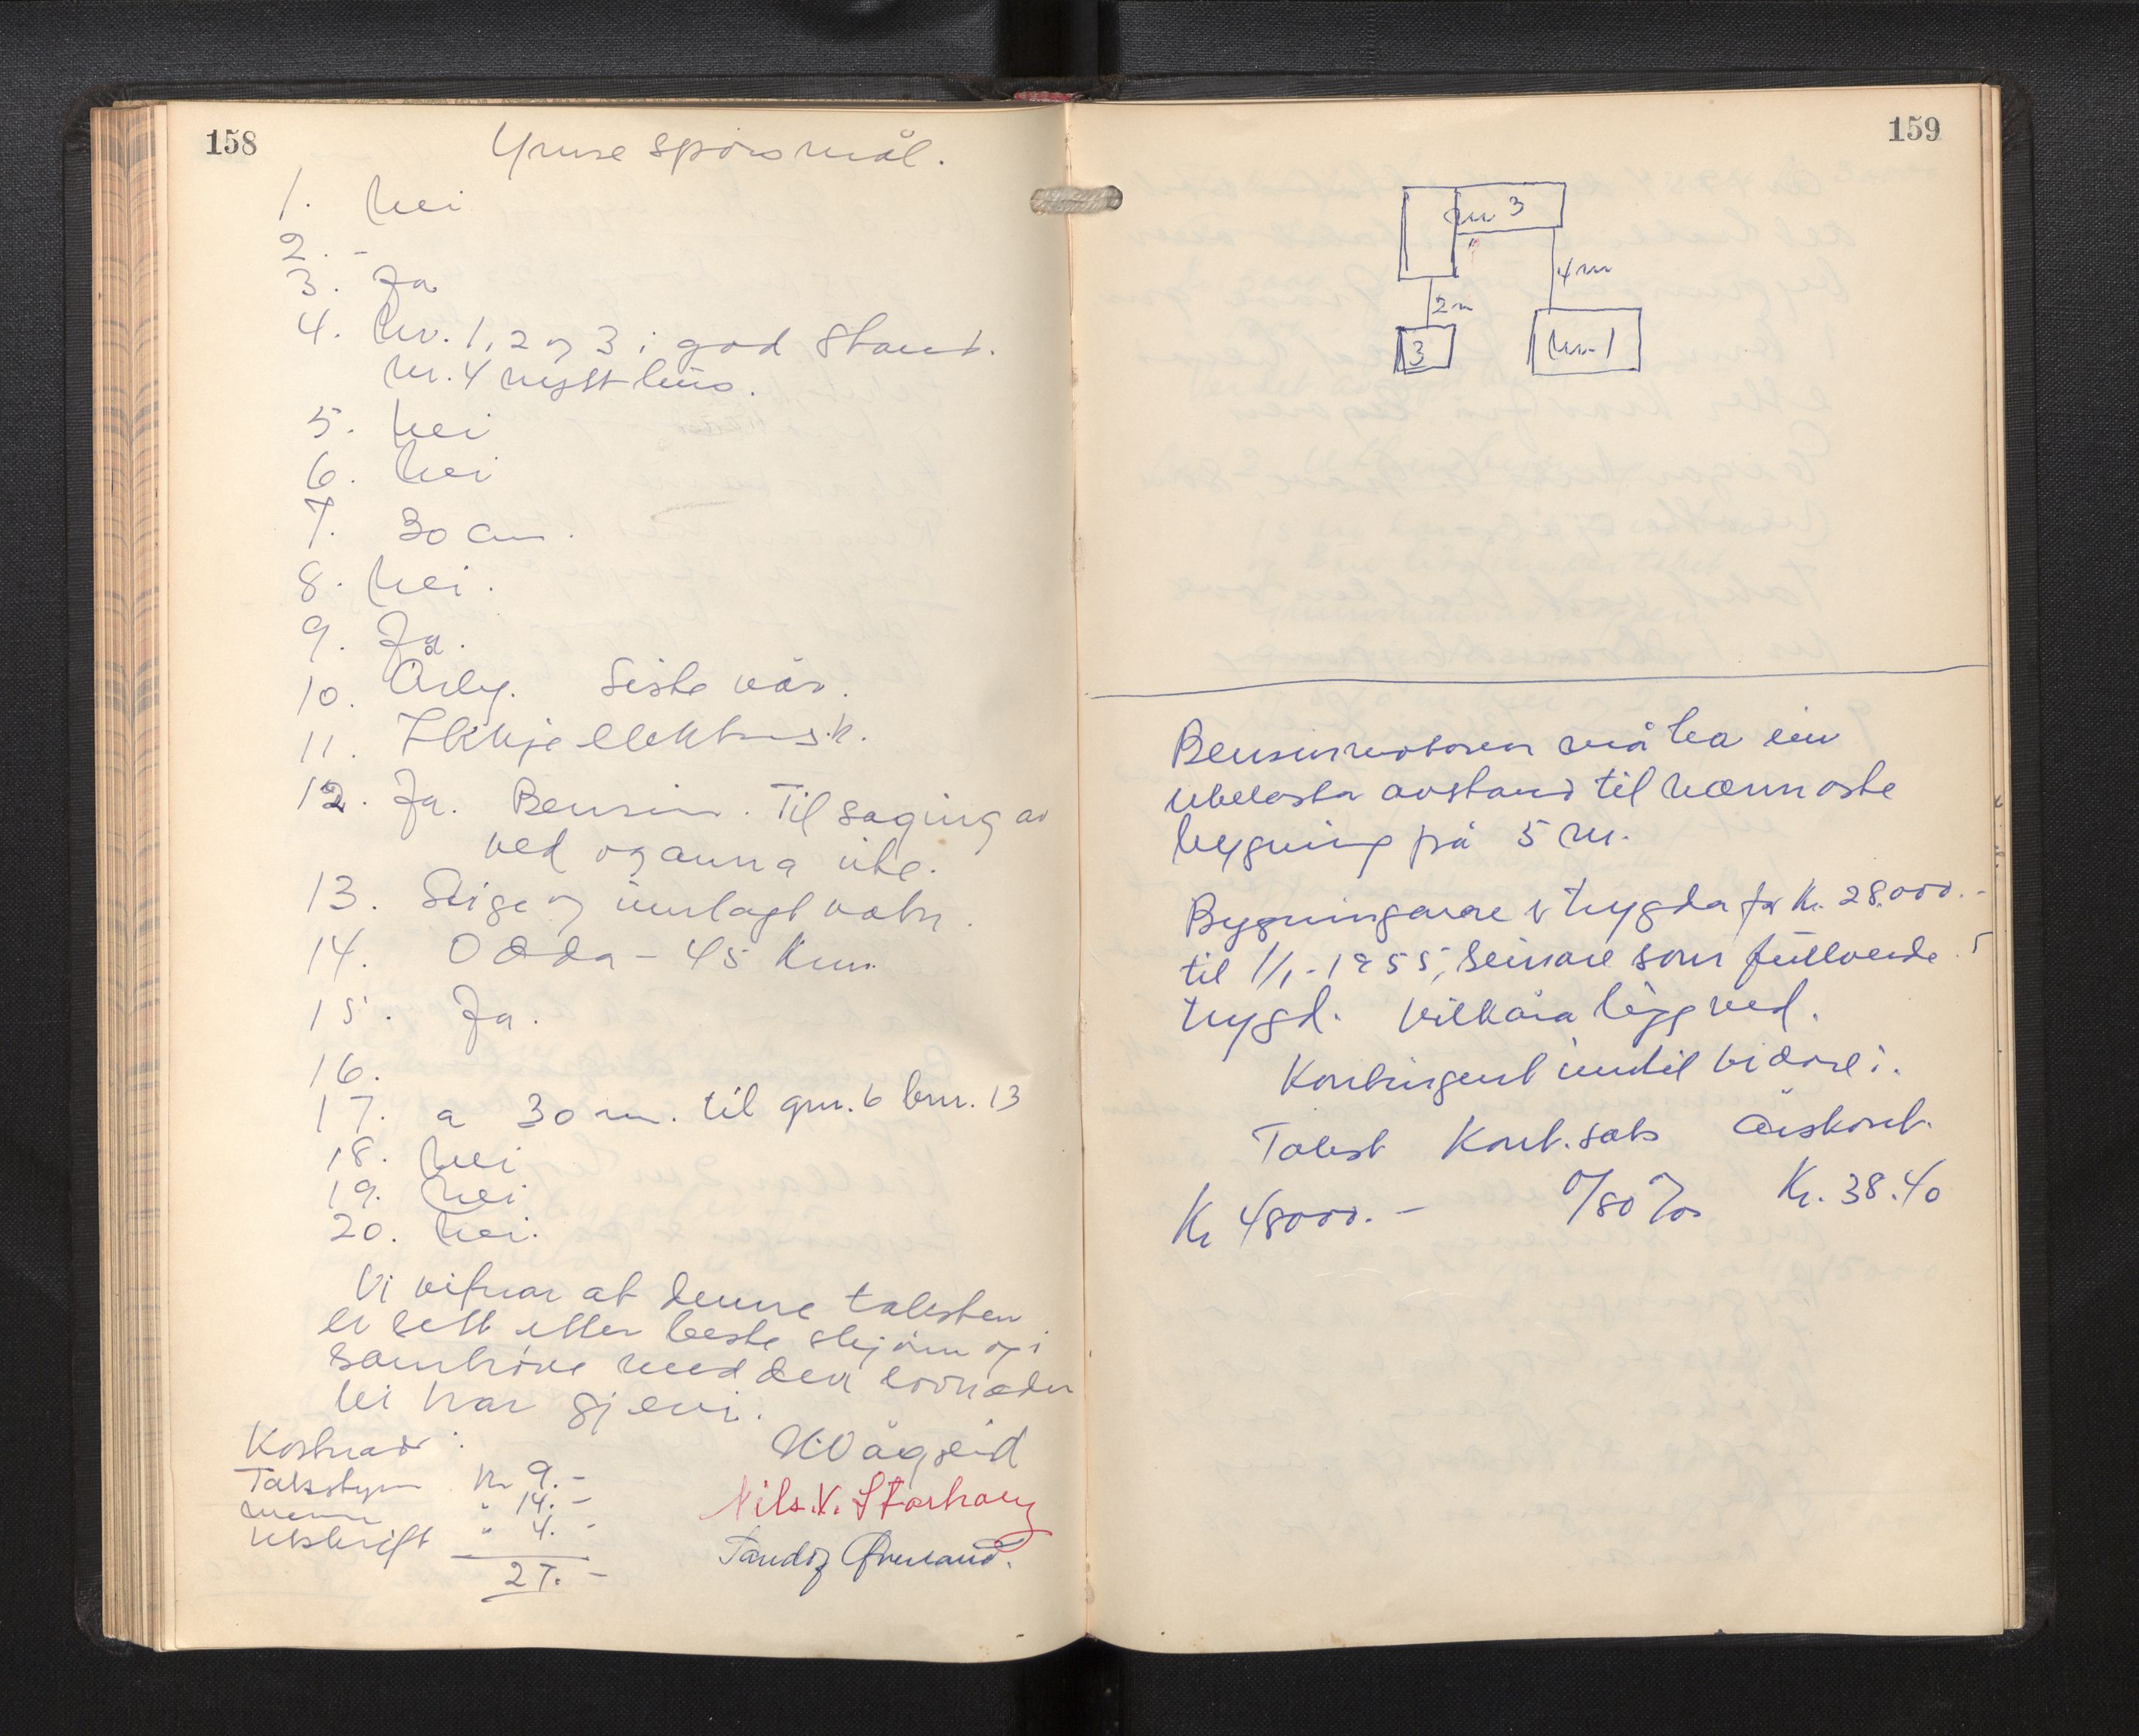 158
Ymse spørsmål.
1. Nei
2. -
3. Ja
4. Nr. 1, 2 og 3 i god stand.
Nr. 4 nytt hus.
5. Nei
6. Nei
7. 30 cm.
8. Nei.
9. Ja.
10. Årleg. Siste vår.
11. Ikkje elektrisk.
12. Ja. Bensin. Til saging av
ved og anna ute.
13. Stige og innlagt vatn.
14. Odda - 45 km.
15. Ja.
16.
17. a 30 m. til gnr. 6 bnr. 13
18. Nei
19. Nei
20. Nei.
Vi vitnar at denne taksten
er sett etter beste skjønn og i
samhøve med den lovnaden
vi har gjevi.
Kostnad:
Takstyrar Kr 9.-
menn " 14.-
Utskrift " 4.-
27.-
Vågseid
Nils. V. Storhaug
159
nr 3
4 m
2 m
3
Nr. 1
Bensinmotoren må ha ein
ubelasta avstand til nærmaste
bygning på 5 m.
Bygningane er trygda for kr. 28.000.-
til 1/1-1955, seinare som fullverde
trygd. Vilkåra ligg ved.
Kontingent inntil vidare:
Takst Kont.sats Årskont.
Kr 48000.- 0/80 ‰ Kr. 38.40